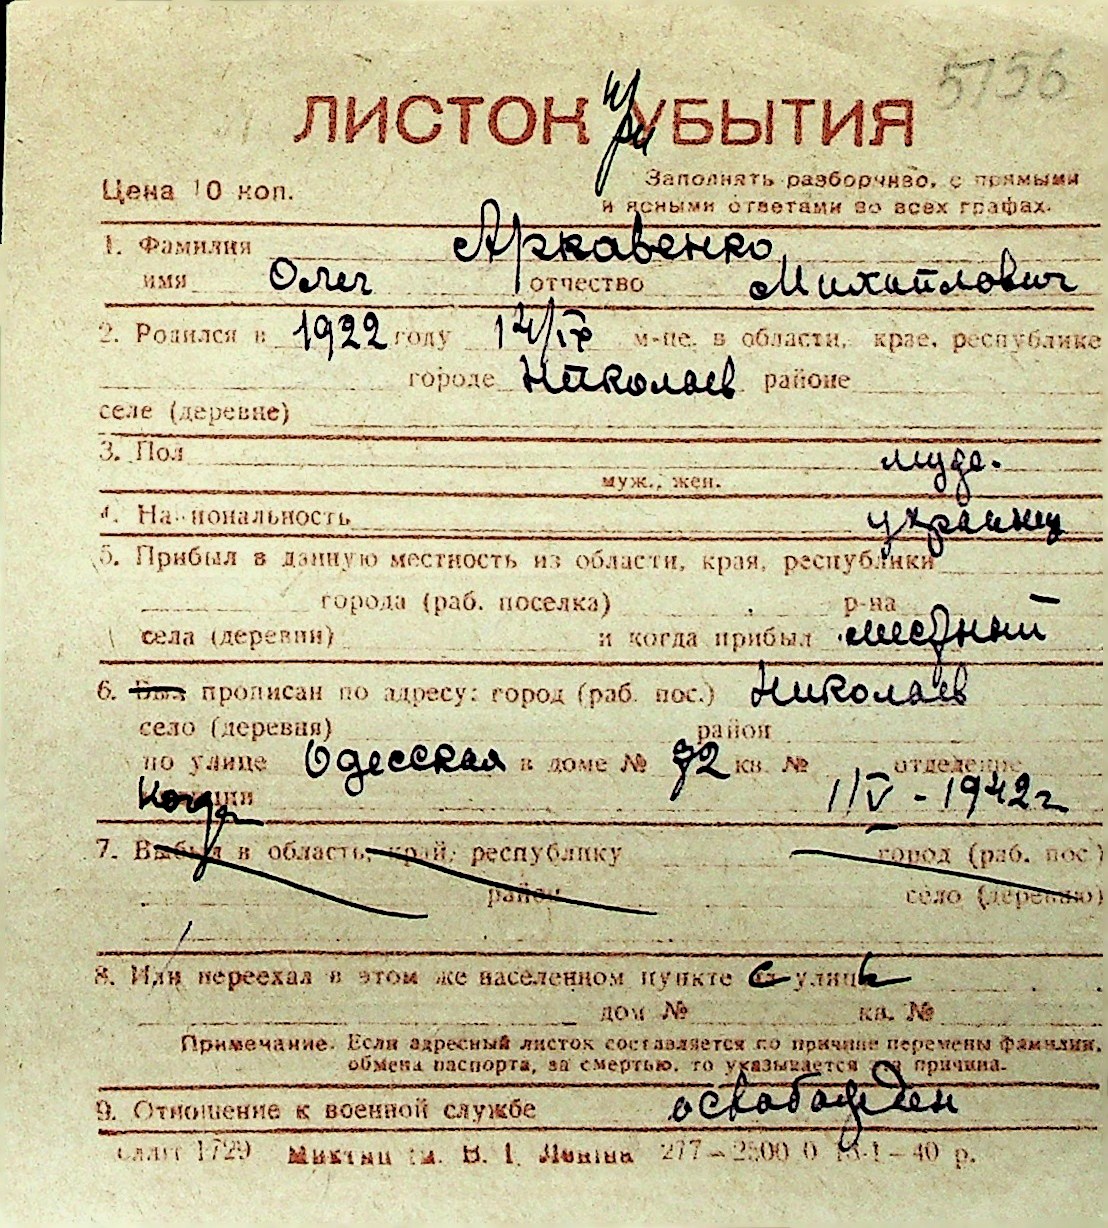 5756
ЛИСТОК при УБЫТИЯ
Цена 10 коп.
Заполнять разборчиво, с прямыми
и ясными ответами во всех графах.
1. Фамилия Аркавенко
имя Олег отчество Михайлович
2. Родился в 1922 году 14/IX м-це, в области, крае, республике
городе Николаев районе
селе (деревне)
3. Пол мужс.
муж., жен.
4. Национальность украинец
5. Прибыл в данную местность из области, края, республики
города (раб. поселка) р-на
села (деревни) и когда прибыл местный
6. Был прописан по адресу: город (раб. пос.) Николаев
село (деревня) район
по улице Одесская в доме № 72 кв. № отделение
Когда 1/V - 1942 г
7. Выбыл в область, край, республику город (раб. пос.)
район село (деревню)
8. Или переехал в этом же населенном пункте с улицы
дом № кв. №
Примечание. Если адресный листок составляется по причине перемены фамилии,
обмена паспорта, за смертью, то указывается эта причина.
9. Отношение к военной службе освобожден
1729 В. І. Леніна 277–2500 0 40 р.